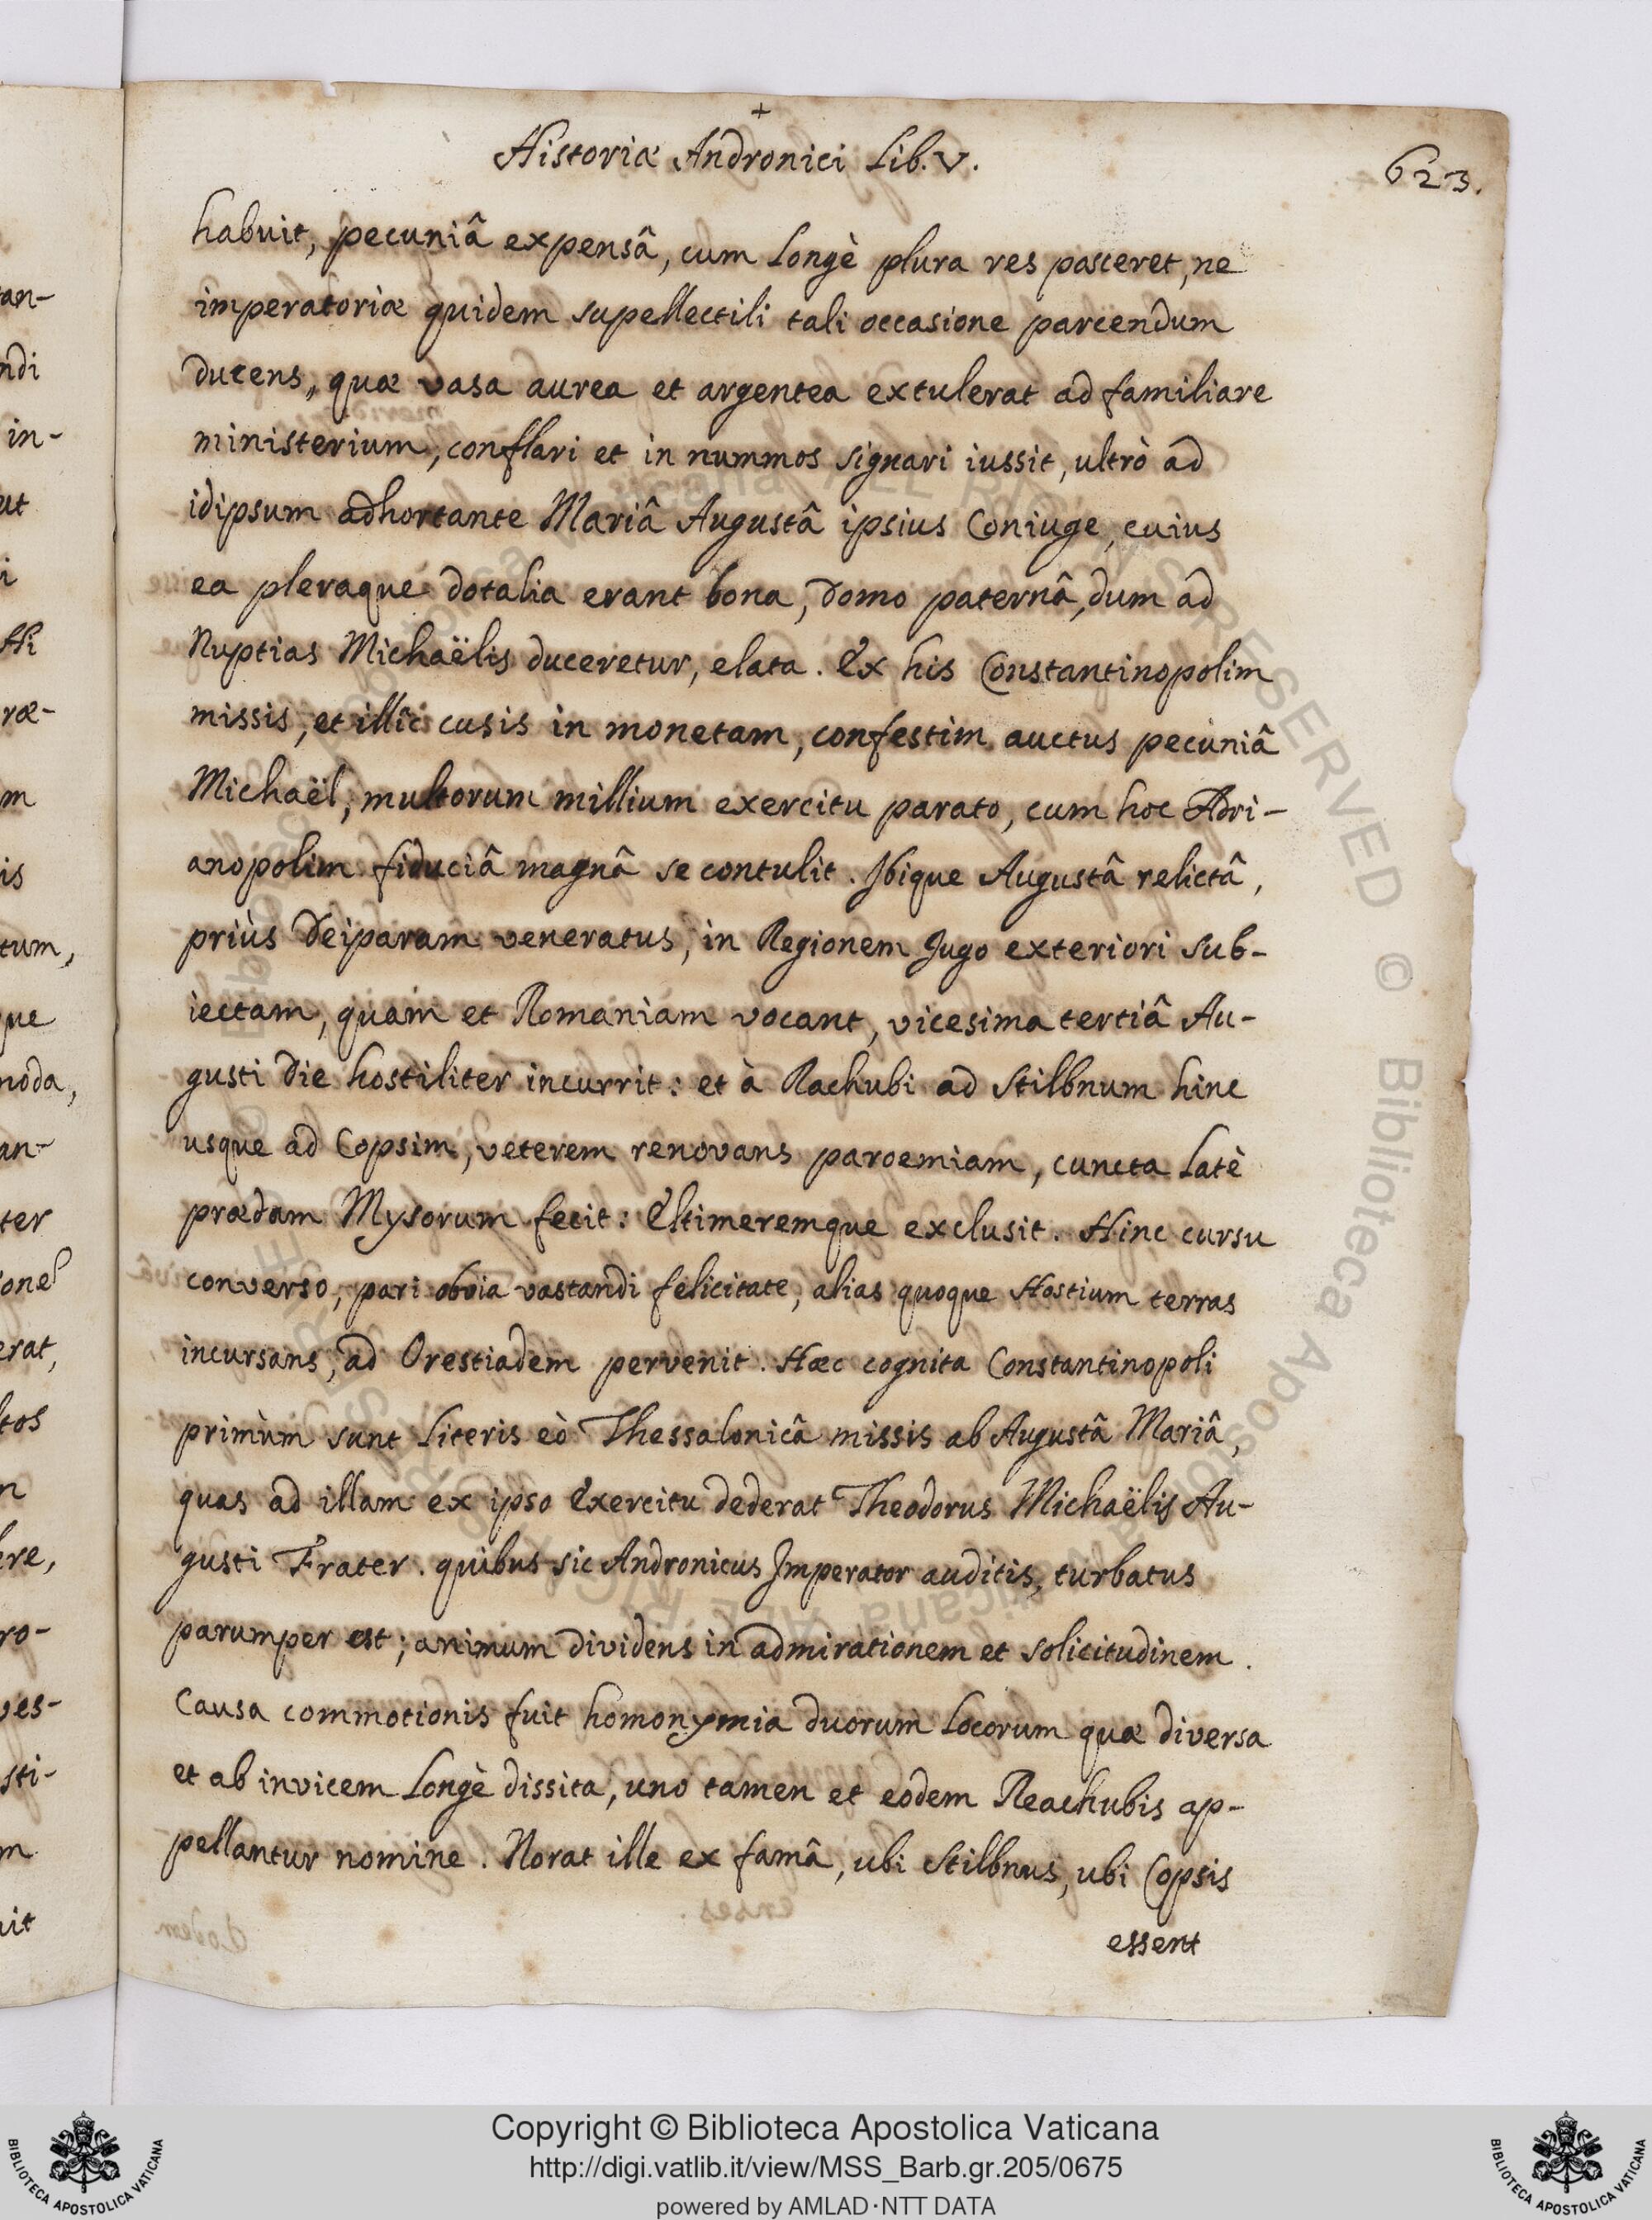 +
Historiæ Andronici Lib. V.
623.
habuit, pecuniâ expensâ, cum Longè plura res posceret, ne
imperatoriæ quidem supellectili tali occasione parcendum
ducens, quæ vasa aurea et argentea extulerat ad familiare
ministerium, conflari et in nummos signari iussit, ultrò ad
idipsum adhortante Mariâ Augustâ ipsius Coniuge, cuius
ea pleraque dotalia erant bona, domo paternâ, dum ad
Nuptias Michaëlis duceretur, elata. Ex his Constantinopolim
missis, et illîc cusis in monetam, confestim auctus pecuniâ
Michaël, multorum millium exercitu parato, cum hoc Adri-
anopolim fiduciâ magnâ se contulit. Ibique Augustâ relictâ,
priùs Deiparam veneratus, in Regionem Jugo exteriori sub-
iectam, quam et Romaniam vocant, vicesima tertiâ Au-
gusti die hostiliter incurrit: et à Rachubi ad Stilbnum hinc
usque ad Copsim, veterem renovans paroemiam, cuncta Latè
prædam Mysorum fecit: Eltimeremque exclusit. Hinc cursu
converso, pari obvia vastandi felicitate, alias quoque Hostium terras
incursans, ad Orestiadem pervenit. Hæc cognita Constantinopoli
primùm sunt Literis eò Thessalonicâ missis ab Augustâ Mariâ,
quas ad illam ex ipso Exercitu dederat Theodorus Michaëlis Au-
gusti Frater. quibus sic Andronicus Imperator auditis, turbatus
parumper est; animum dividens in admirationem et solicitudinem.
Causa commotionis fuit homonymia duorum Locorum quæ diversa
et ab invicem Longè dissita, uno tamen et eodem Reachubis ap-
pellantur nomine. Norat ille ex famâ, ubi Stilbnus, ubi Copsis
essent
Copyright © Biblioteca Apostolica Vaticana
http://digi.vatlib.it/view/MSS_Barb.gr.205/0675
powered by AMLAD·NTT DATA
BIBLIOTECA APOSTOLICA VATICANA
BIBLIOTECA APOSTOLICA VATICANA